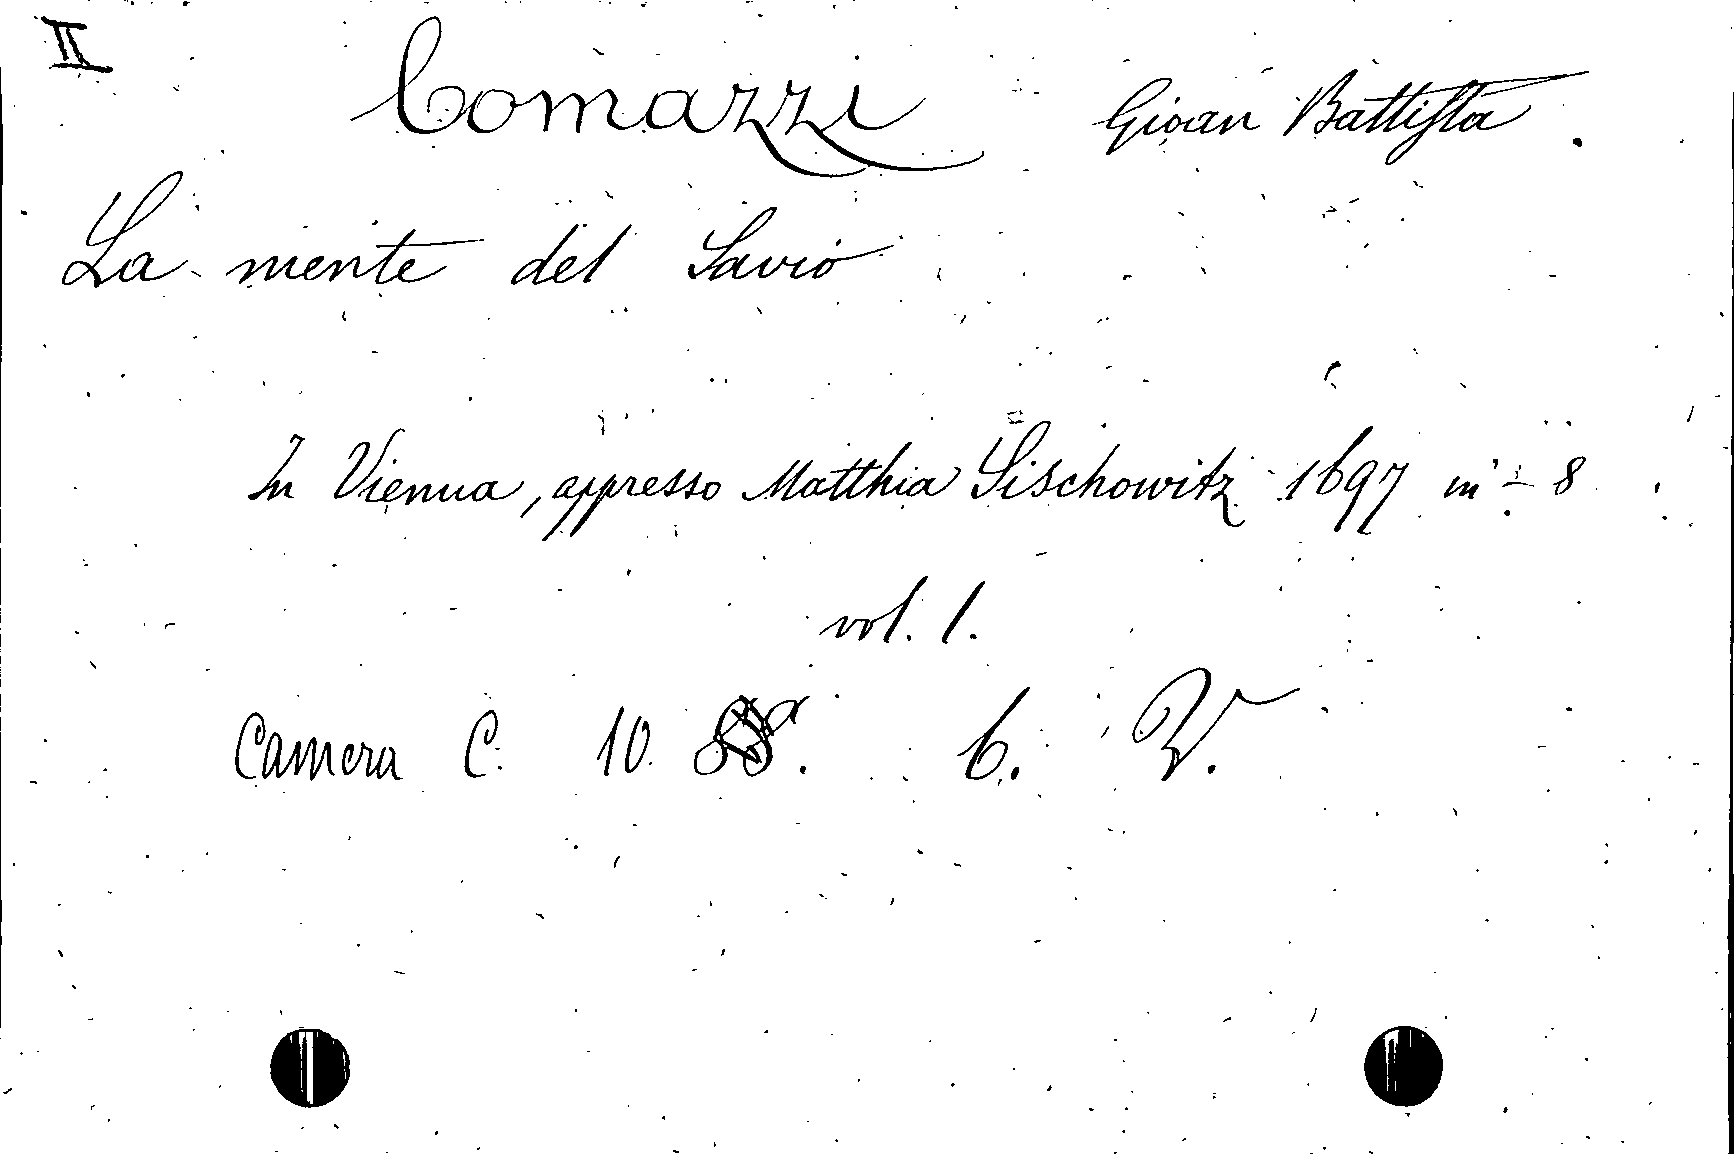 II
Comazzi Gioan Battista.
La mente del Savio
In Vienna, appresso Matthia Sischowitz 1697 in - 8
vol. 1.
Camera C. 10. 6. V.